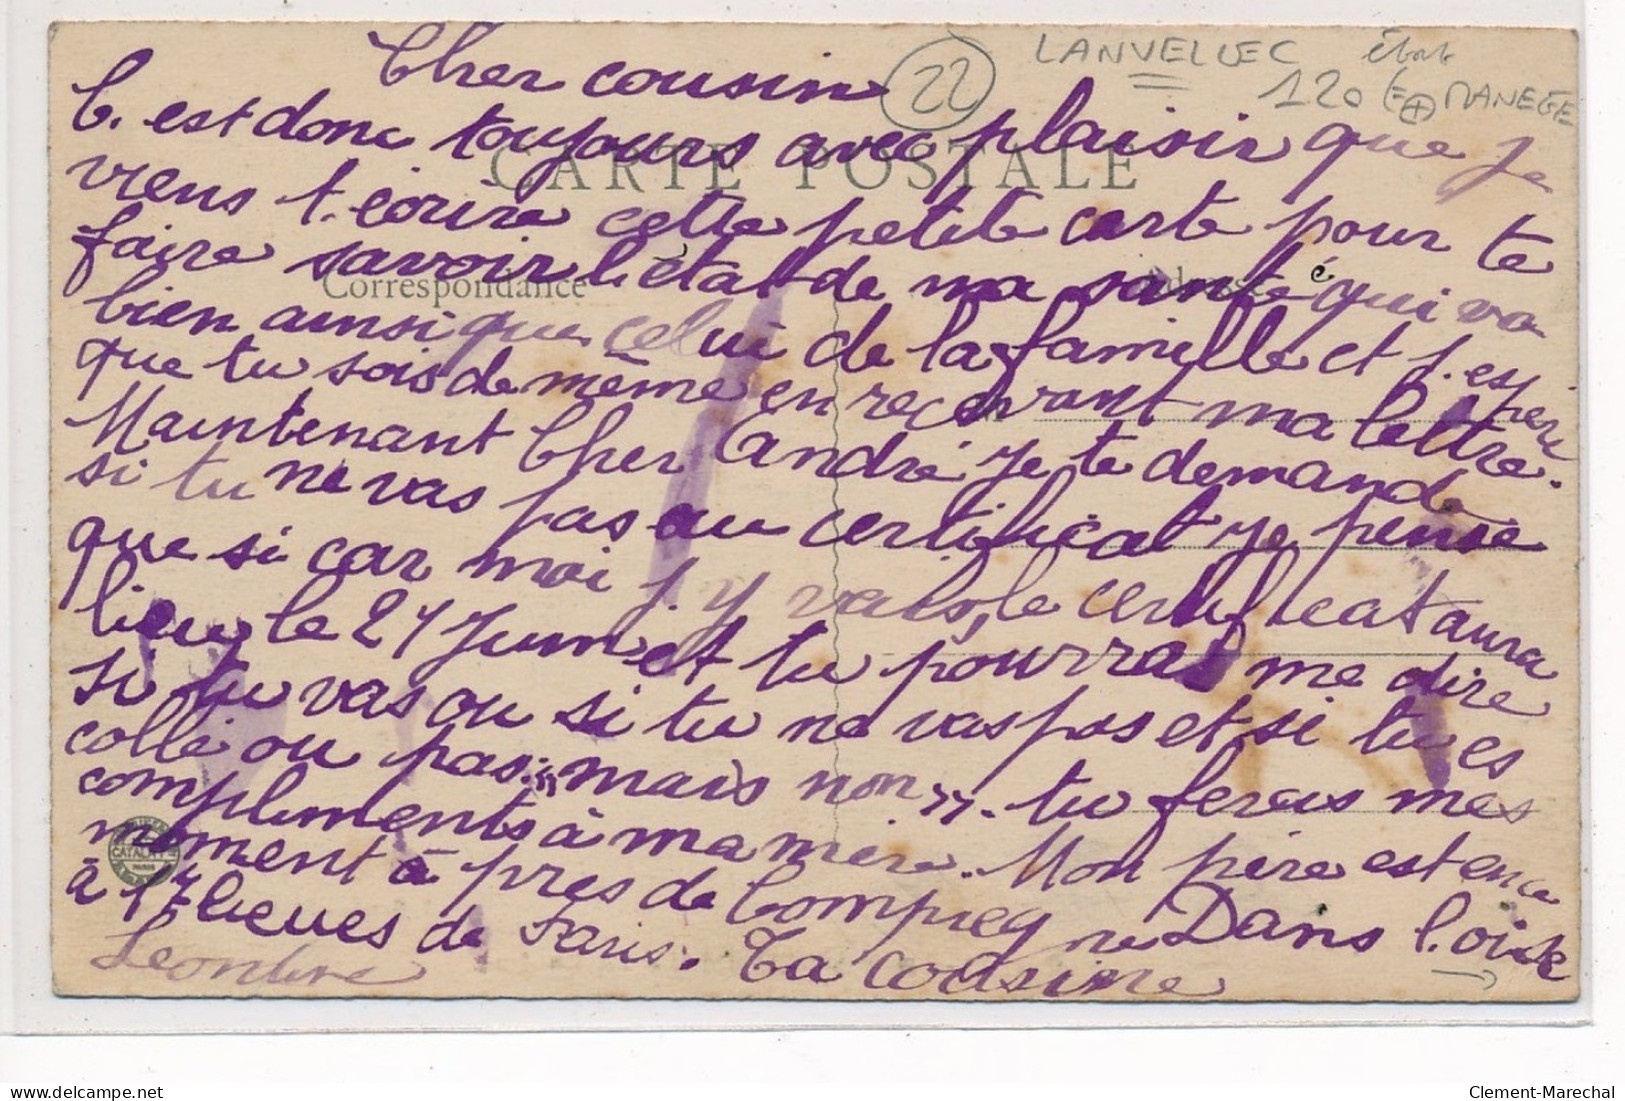 LANVELLEC
22
120
MANEGE
CARTE POSTALE
Correspondance
Cher cousin
C. est donc toujours avec plaisir que je
viens t. écrire cette petite carte pour te
faire savoir l'état de ma santé qui va
bien ainsi que celui de la famille et j. espère
que tu sois de même en recevant ma lettre.
Maintenant Cher André je te demande
si tu ne vas pas au certificat je pense
que si car moi j. y vais, le certificat aura
lieu le 27 Juin et tu pourras me dire
si tu vas ou si tu ne vas pas et si tu es
collé ou pas. "mais non". tu feras mes
compliments à ma mère. Mon père est en ce
moment à près de Compiegne Dans l. oise
à 17 lieues de Paris. Ta cousine
CATALA
PARIS
delcampe.net
Clement-Marechal